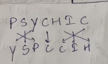 PSYCHIC
YSPCCIH